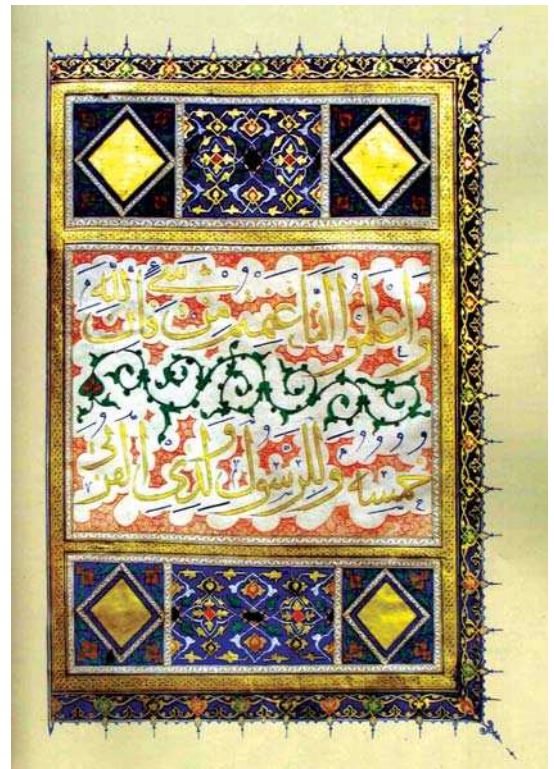 واعلموا انما غنمتم من شیء فان لله
خمسه وللرسول ولذی القربی